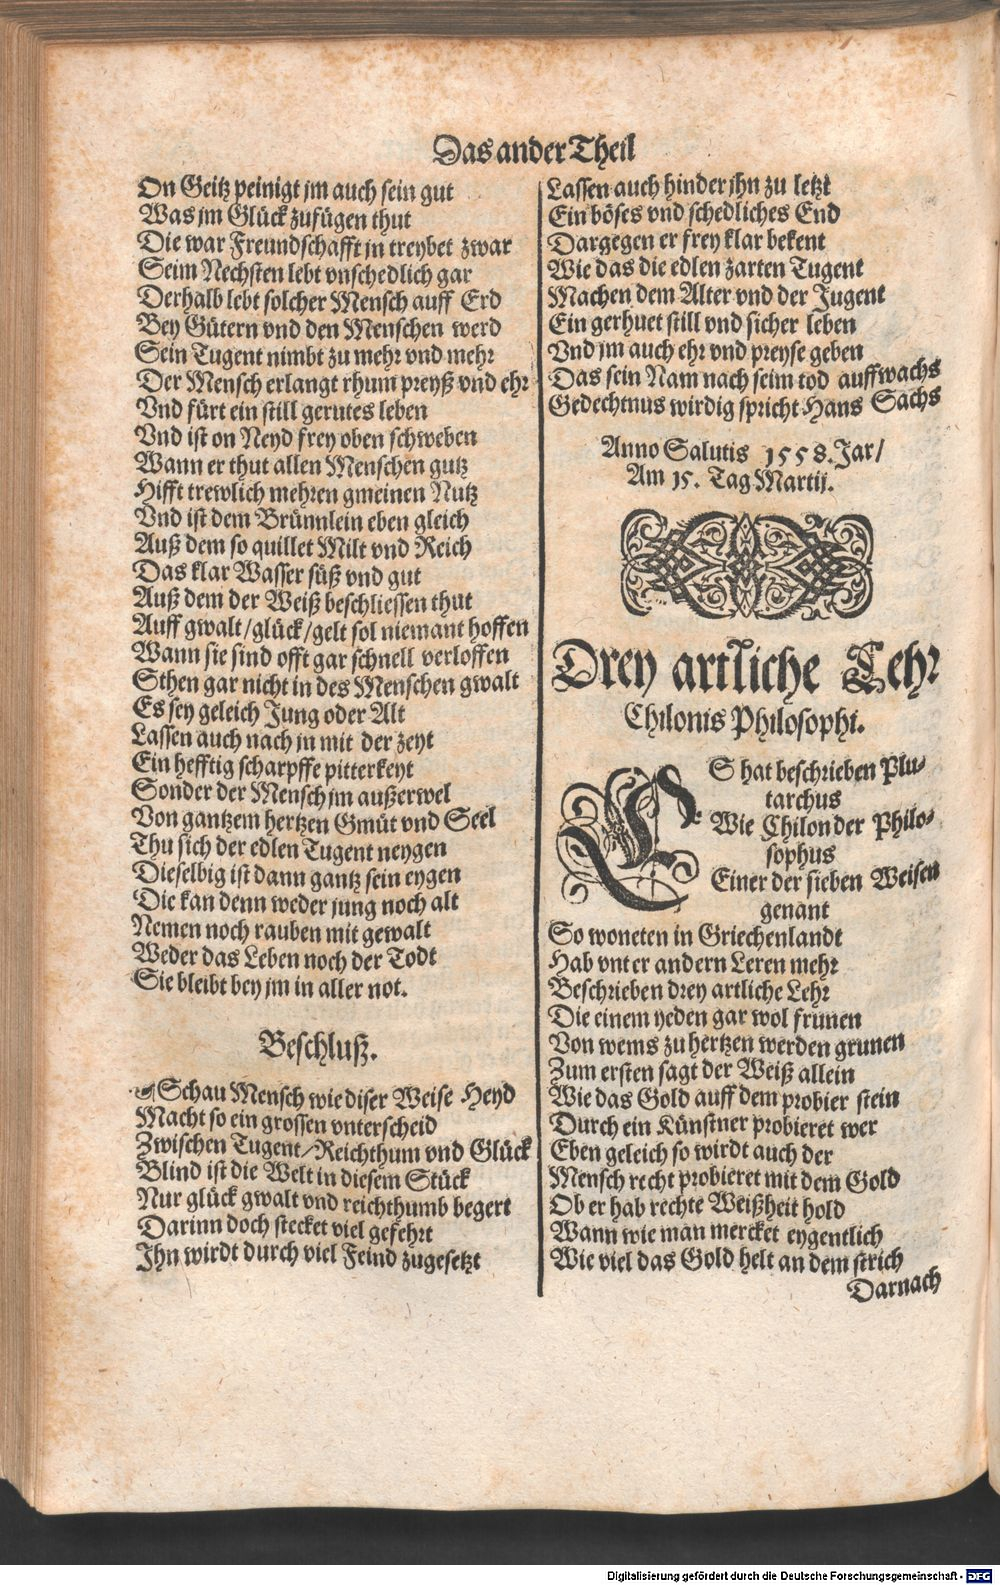 Das ander Theil
On Geitz peinigt jm auch sein gut
Was jm Glück zufügen thut
Die war Freundschafft in treybet zwar
Seim Nechsten lebt vnschedlich gar
Derhalb lebt solcher Mensch auff Erd
Bey Gütern vnd den Menschen werd
Sein Tugent nimbt zu mehr vnd mehr
Der Mensch erlangt rhum preyß vnd ehr
Vnd fürt ein still gerutes leben
Vnd ist on Neyd frey oben schweben
Wann er thut allen Menschen gutz
Hifft trewlich mehren gmeinen Nutz
Vnd ist dem Brünnlein eben gleich
Auß dem so quillet Milt vnd Reich
Das klar Wasser süß vnd gut
Auß dem der Weiß beschliessen thut
Auff gwalt/glück/gelt sol niemant hoffen
Wann sie sind offt gar schnell verloffen
Sthen gar nicht in des Menschen gwalt
Es sey geleich Jung oder Alt
Lassen auch nach jn mit der zeyt
Ein hefftig scharpffe pitterkeyt
Sonder der Mensch jm außerwel
Von gantzem hertzen Gmüt vnd Seel
Thu sich der edlen Tugent neygen
Dieselbig ist dann gantz sein eygen
Die kan denn weder jung noch alt
Nemen noch rauben mit gewalt
Weder das Leben noch der Todt
Sie bleibt bey jm in aller not.
Beschluß.
Schau Mensch wie diser Weise Heyd
Macht so ein grossen vnterscheid
Zwischen Tugent/Reichthum vnd Glück
Blind ist die Welt in diesem Stück
Nur glück gwalt vnd reichthumb begert
Darinn doch stecket viel gefehrt
Ihn wirdt durch viel Feind zugesetzt
Lassen auch hinder jhn zu letzt
Ein böses vnd schedliches End
Dargegen er frey klar bekent
Wie das die edlen zarten Tugent
Machen dem Alter vnd der Jugent
Ein gerhuet still vnd sicher leben
Vnd jm auch ehr vnd preyse geben
Das sein Nam nach seim tod auffwachs
Gedechtnus wirdig spricht Hans Sachs
Anno Salutis 1558. Jar/
Am 15. Tag Martij.
Drey artliche Lehr
Chilonis Philosophi.
ES hat beschrieben Plu-
tarchus
Wie Chilon der Philo-
sophus
Einer der sieben Weisen
genant
So woneten in Griechenlandt
Hab vnter andern Leren mehr
Beschrieben drey artliche Lehr
Die einem yeden gar wol frunen
Von wems zu hertzen werden grunen
Zum ersten sagt der Weiß allein
Wie das Gold auff dem probier stein
Durch ein Künstner probieret wer
Eben geleich so wirdt auch der
Mensch recht probieret mit dem Gold
Ob er hab rechte Weißheit hold
Wann wie man mercket eygentlich
Wie viel das Gold helt an dem strich
Darnach
Digitalisierung gefördert durch die Deutsche Forschungsgemeinschaft - DFG